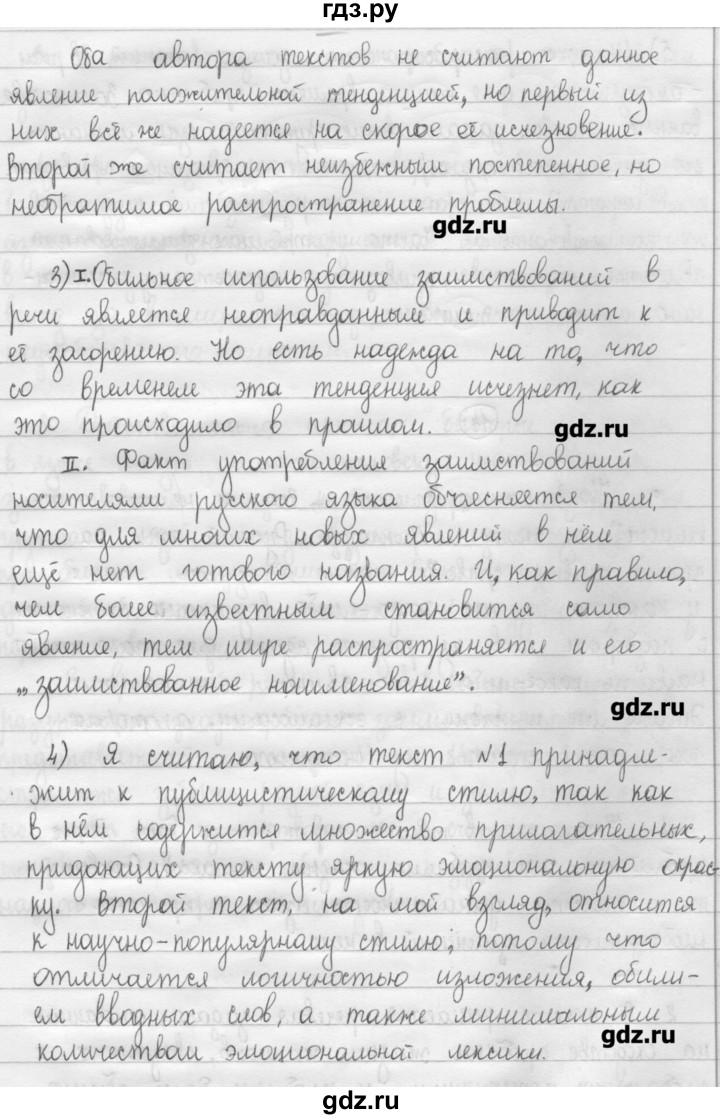 гдз.ру
Оба автора текстов не считают данное
явление положительной тенденцией, но первый из
них всё же надеется на скорое её исчезновение.
Второй же считает неизбежным постепенное, но
необратимое распространение проблемы.
gdz.ru
3) I. Обильное использование заимствований в
речи является неоправданным и приводит к
её засорению. Но есть надежда на то, что
со временем эта тенденция исчезнет, как
это происходило в прошлом.
gdz.ru
II. Факт употребления заимствований
носителями русского языка объясняется тем,
что для многих новых явлений в нём
ещё нет готового названия. И, как правило,
чем более известным становится само
явление, тем шире распространяется и его
„заимствованное наименование".
gdz.ru
4) Я считаю, что текст №1 принадле-
жит к публицистическому стилю, так как
в нём содержится множество прилагательных,
придающих тексту яркую эмоциональную окрас-
ку. Второй текст, на мой взгляд, относится
к научно-популярному стилю, потому что
отличается логичностью изложения, обили-
ем вводных слов, а также минимальным
количеством эмоциональной лексики.
gdz.ru
гдз.ру